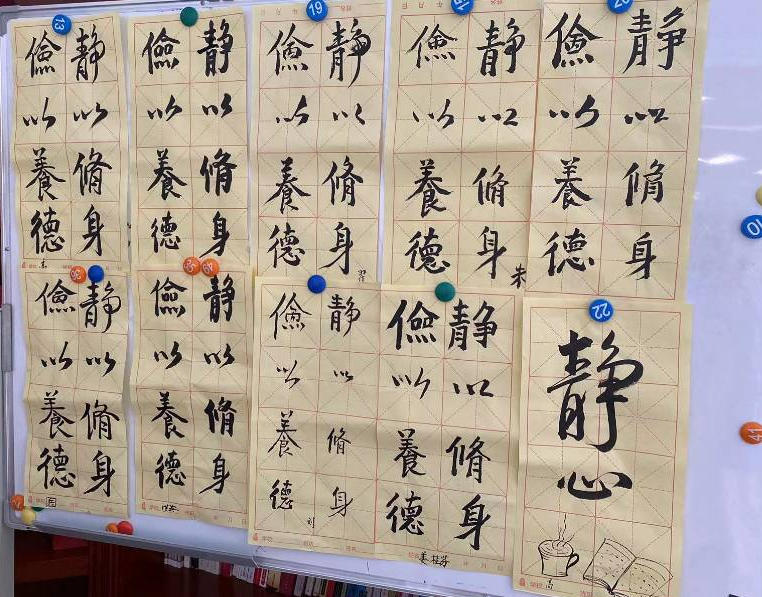 静以修身
儉以養德
静以修身
儉以養德
静以修身
儉以養德
静以修身
儉以養德
朱
静以修身
儉以養德
静以修身
儉以養德
静以修身
儉以養德
静以修身
儉以養德
刘
静以修身
儉以養德
姜桂芬
静心
高
13
19
21
22
10